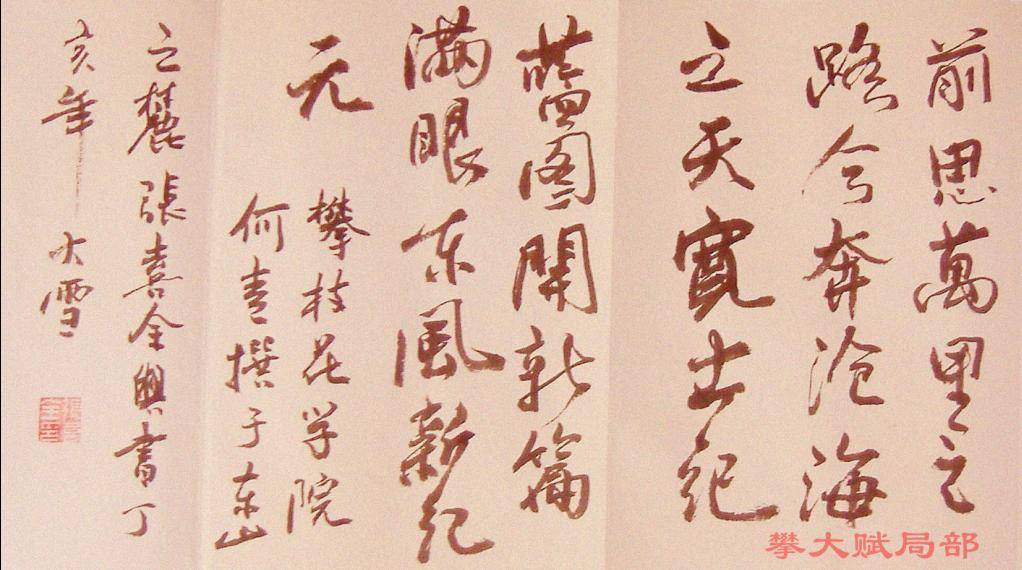 前思萬里之
路今奔沧海
之天世纪
蓝图開新篇
满眼东風新纪
元
攀枝花学院
何青撰于东山
之麓張喜全興書丁
亥年大雪
攀大赋局部